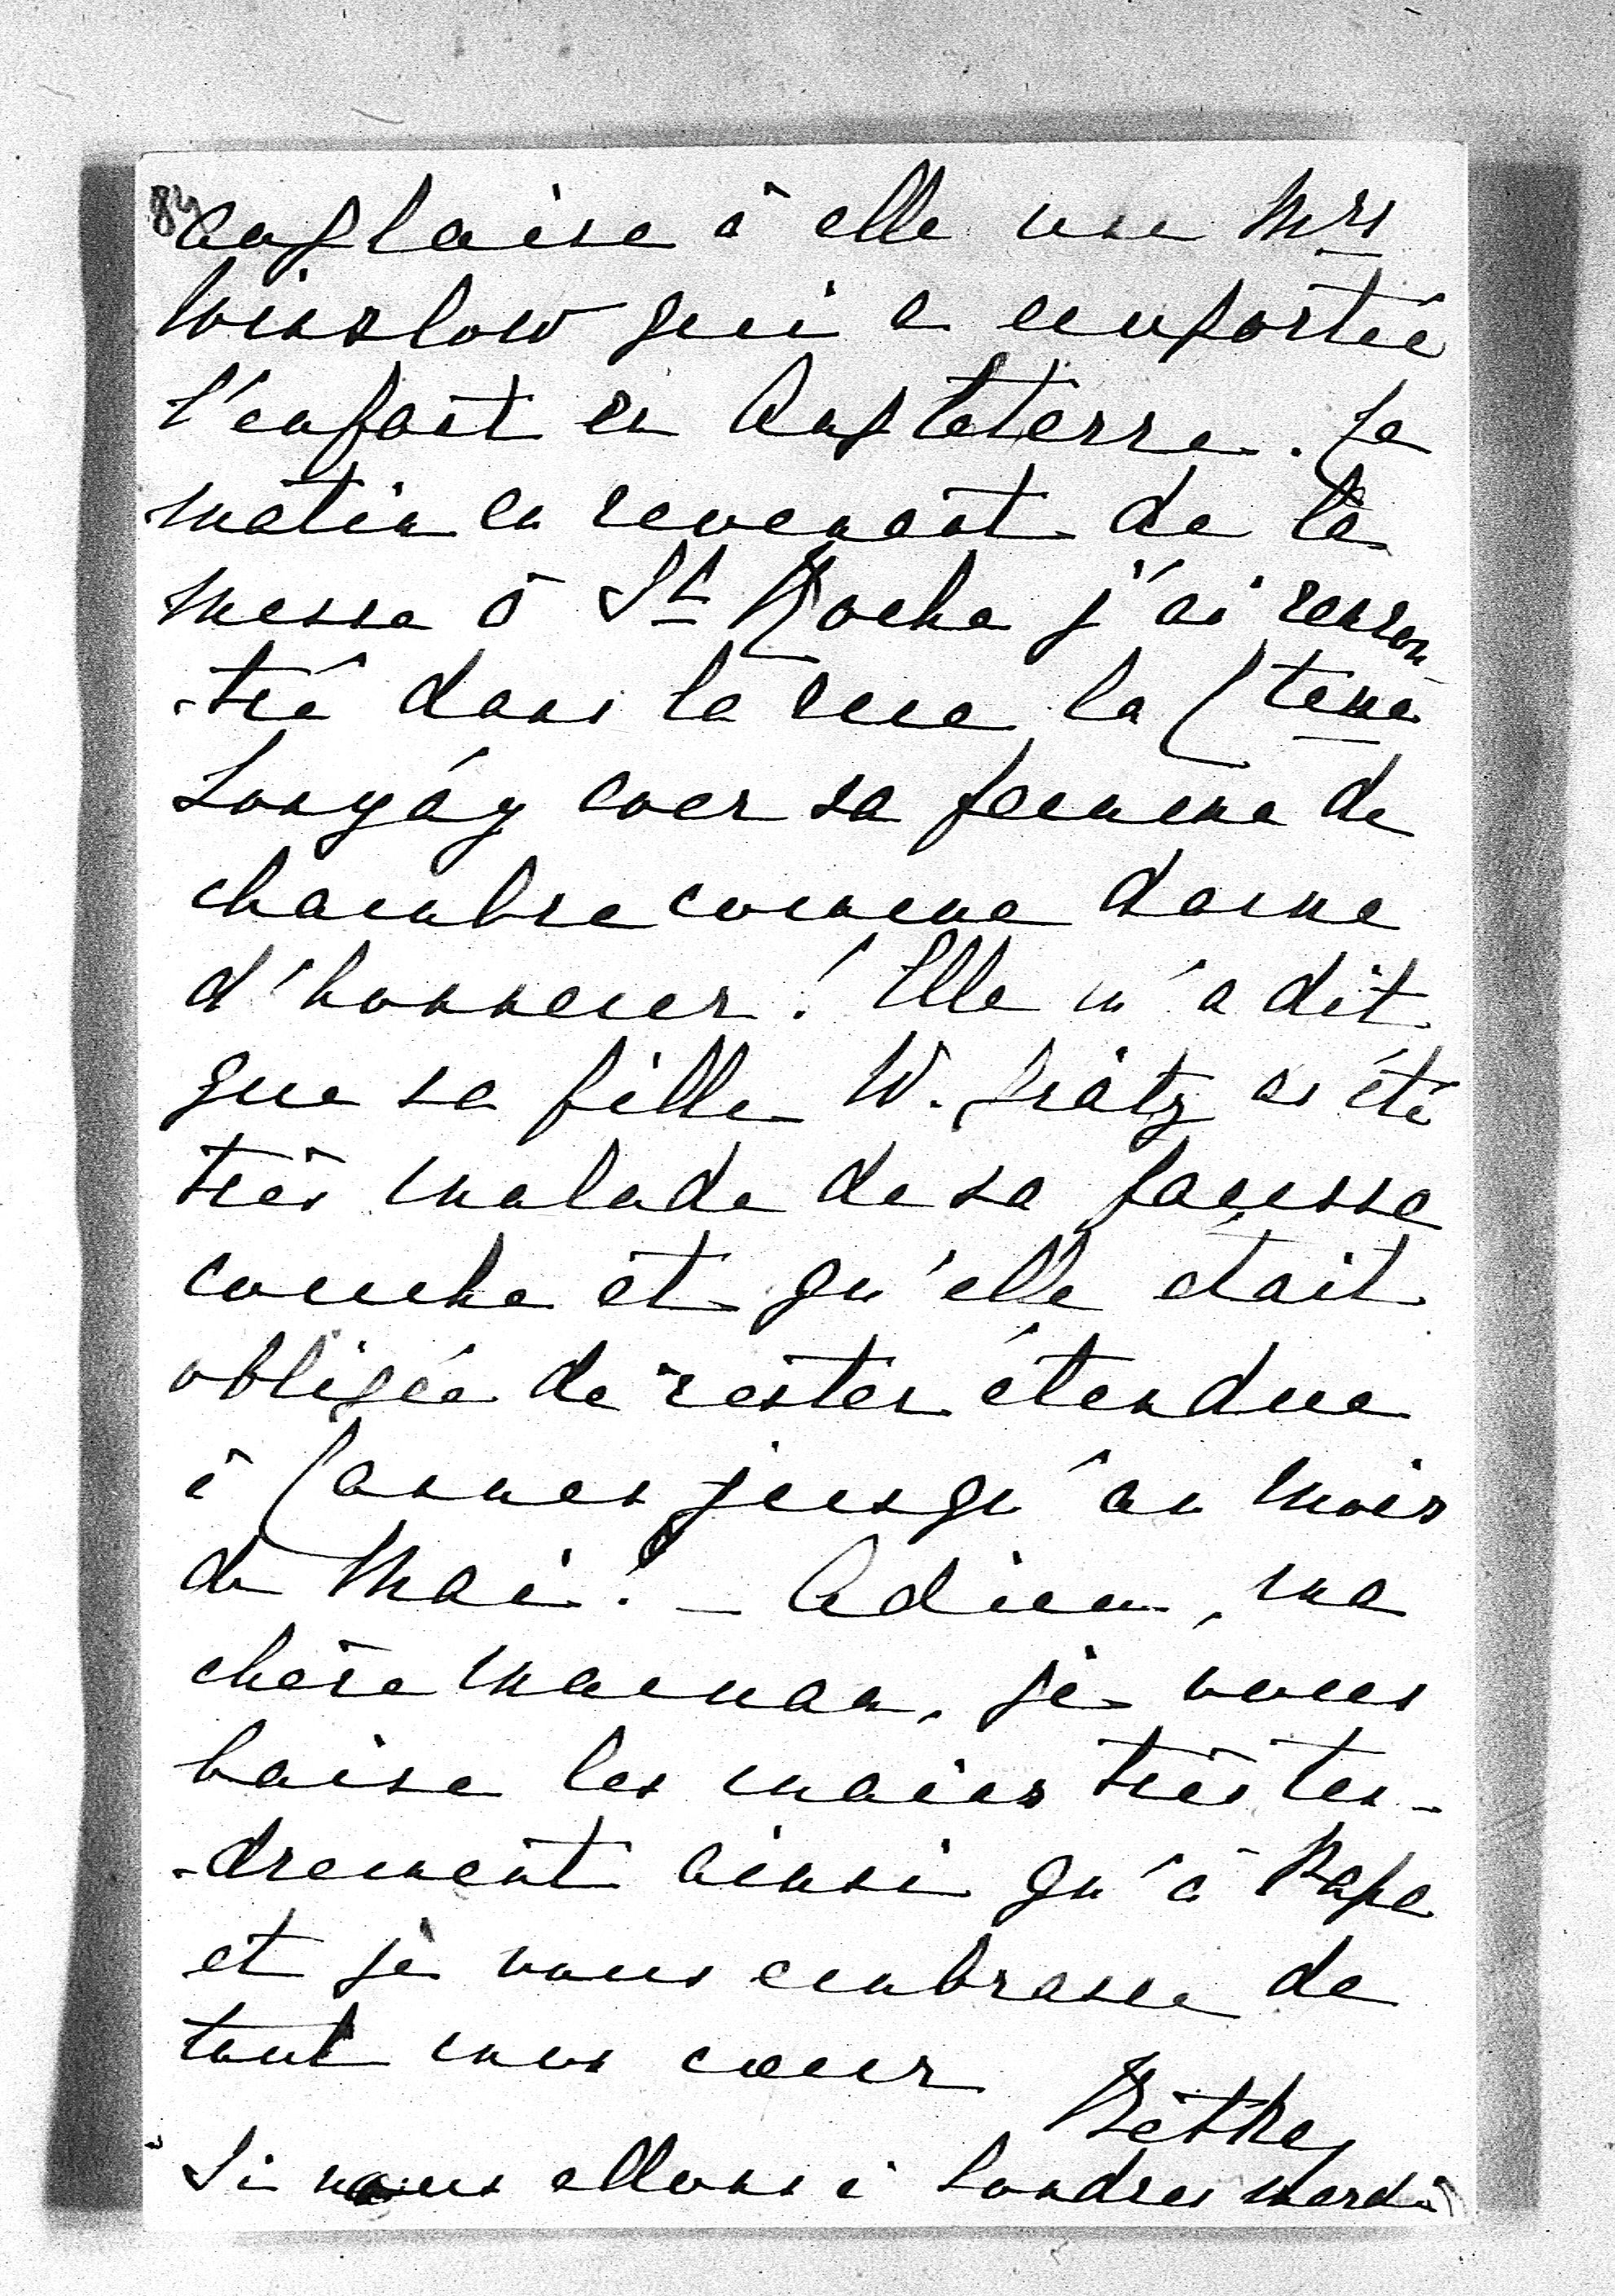 84
anglaise à elle une Mrs
Winslow qui a emportée
l'enfant en Angleterre. Le
matin en revenant de la
messe à St Roche j'ai rencon
-tré dans la rue la Ctesse
Lonyáy avec sa femme de
chambre comme dame
d'honneur! Elle m'a dit
que sa fille W. Grätz as été
très malade de sa fausse
couche et qu'elle était
obligée de rester étendue
à Cannes jusqu'au mois
de Mai! – Adieu, ma
chère maman, je vous
baise les mains très ten-
-drement ainsi qu'à Papa
et je vous embrasse de
tout mon cœur
Si nous allons à Londres mardi